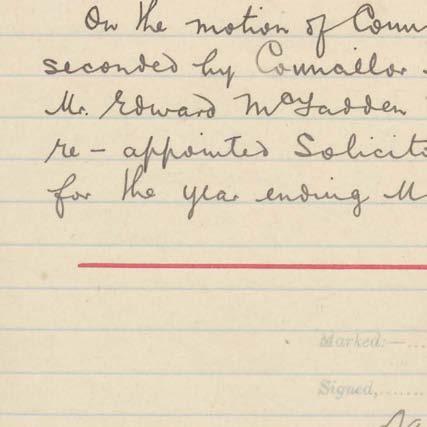 On the motion of Coun
seconded by Councillor
Mr. Edward McFadden
re-appointed Solicito
for the year ending M
Marked:—....
Signed,.......